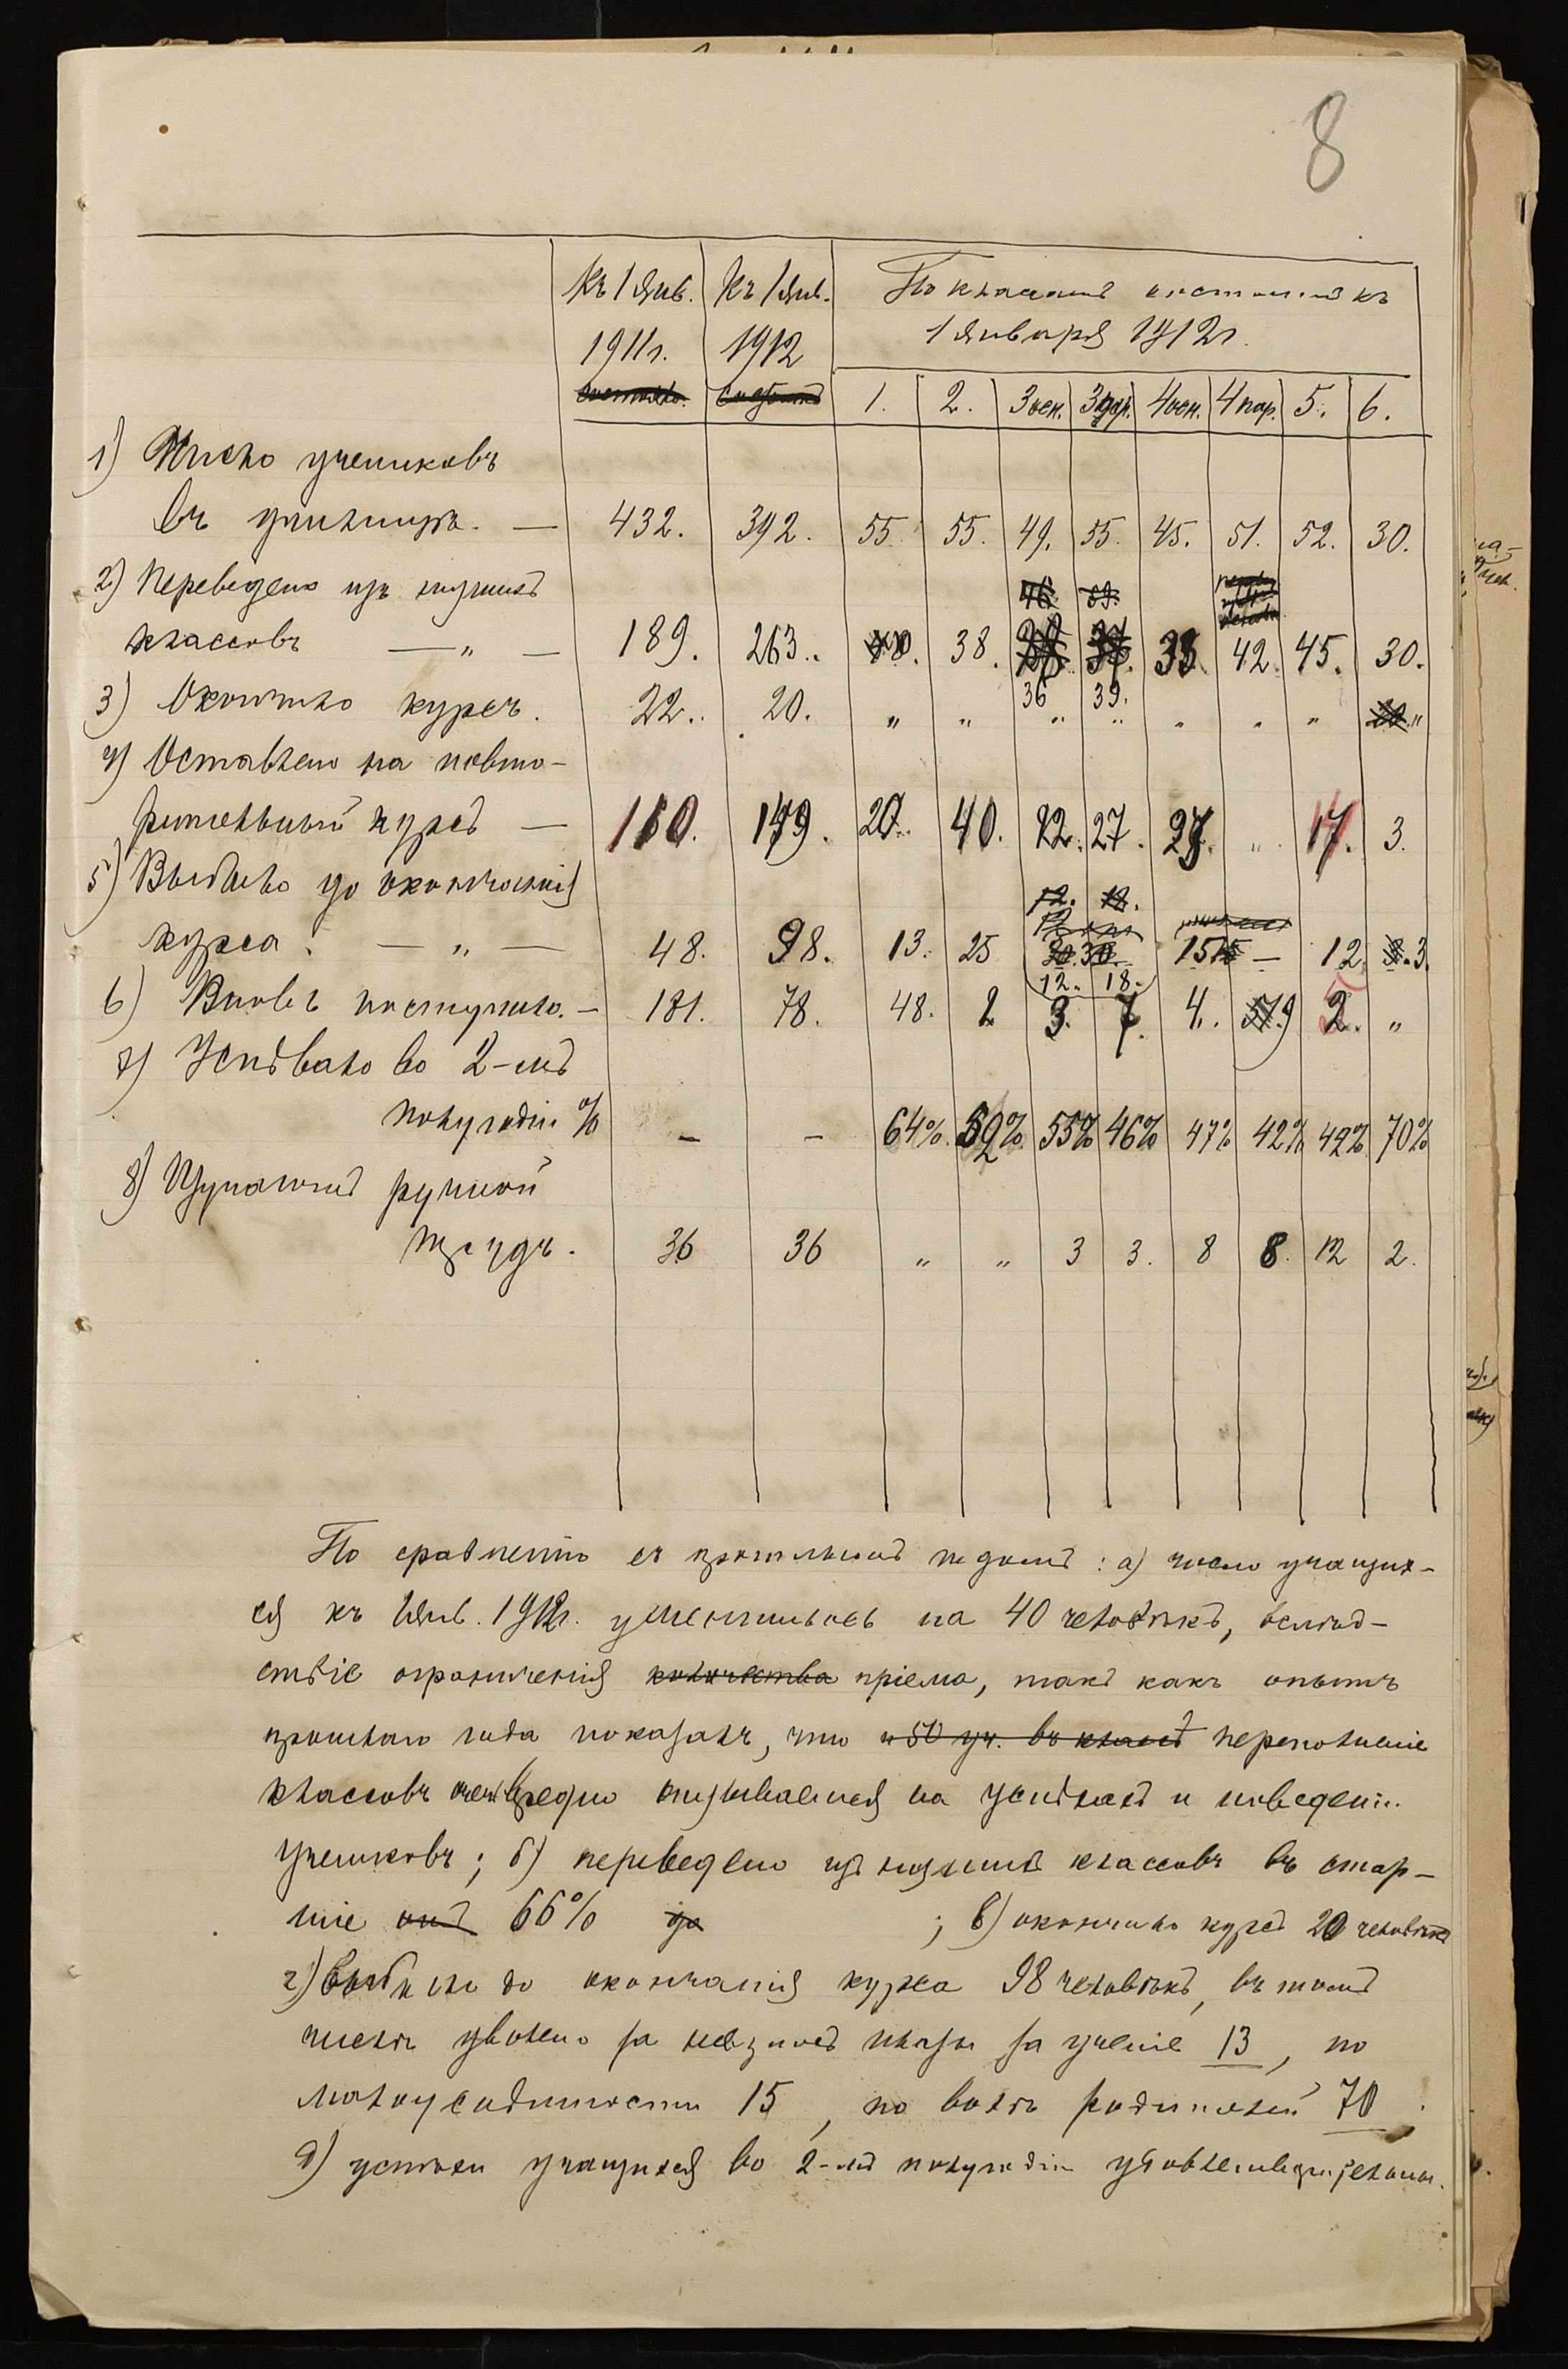 8
Къ 1 Янв. Къ 1 Янв. По классамъ состоитъ къ
1911г. 1912 1 Января 1912г.
состояло.
1. 2. 3 осн. 3 пар. 4 осн. 4 пар. 5. 6.
1) Число учениковъ
въ училищѣ. — 432. 392. 55. 55. 49. 55. 45. 51. 52. 30.
2) Переведено изъ низшихъ
классовъ — „ — 189. 263. 38. 42. 45. 30.
36 39.
3) Окончило курсъ. 22. 20. „ „ „ „ „ „ „ „
4) Оставлено на повто-
рительный курсъ — 149. 27. „ 17. 3.
5) Выбыло до окончанія
курса. — „ — 48. 98. 13. 25 15 — 12. 3.
12. 18.
6) Вновь поступило. — 181. 78. 48. 2 3. 7. 4. 9 2. „
7) Успѣвало во 2-мъ
полугодіи % – – 64% 55% 46% 47% 42% 42% 70%
8) Изучаютъ ручной
трудъ. 36 36 „ „ 3 3. 8 8. 12 2.
По сравненію съ прошлымъ годомъ: а) число учащих-
ся къ 1 Янв. 1912г. уменьшилось на 40 человѣкъ, вслѣд-
ствіе ограниченія количества пріема, такъ какъ опытъ
прошлаго года показалъ, что 50 уч. въ классѣ переполненіе
классовъ вредно отзывается на успѣхахъ и поведеніи
учениковъ; б) переведено изъ низшихъ классовъ въ стар-
шіе 66% до ; в) окончило курсъ 20 человѣкъ
г) выбыло до окончанія курса 98 человѣкъ, въ томъ
числѣ уволено за невзносъ платы за ученіе 13, по
малоуспѣшности 15, по волѣ родителей 70;
д) успѣхи учащихся во 2-мъ полугодіи удовлетворительны.